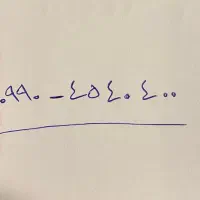 .٩٩٠ - ٤٥٤٠٤٠٠